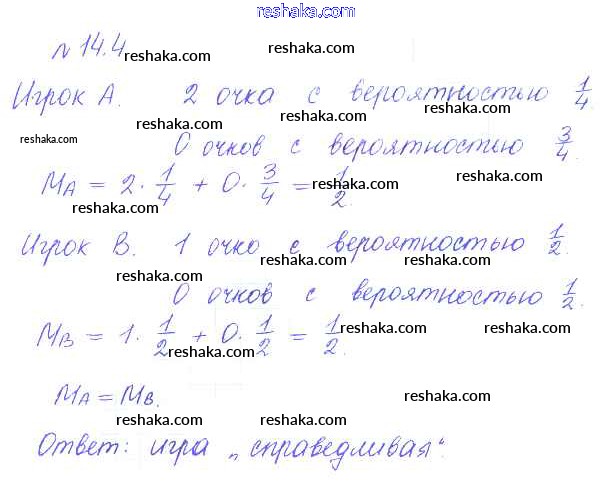 www.reshaka.com
№ 14.4
reshaka.com reshaka.com reshaka.com
Игрок А. 2 очка с вероятностью 1/4
reshaka.com reshaka.com
reshaka.com
0 очков с вероятностью 3/4.
reshaka.com reshaka.com
M_A = 2 · 1/4 + 0 · 3/4 = 1/2.
reshaka.com reshaka.com
Игрок В. 1 очко с вероятностью 1/2.
reshaka.com reshaka.com reshaka.com
0 очков с вероятностью 1/2.
reshaka.com reshaka.com
M_B = 1 · 1/2 + 0 · 1/2 = 1/2.
reshaka.com reshaka.com reshaka.com
M_A = M_B.
reshaka.com reshaka.com
reshaka.com reshaka.com
Ответ: игра „справедливая“.
reshaka.com reshaka.com reshaka.com